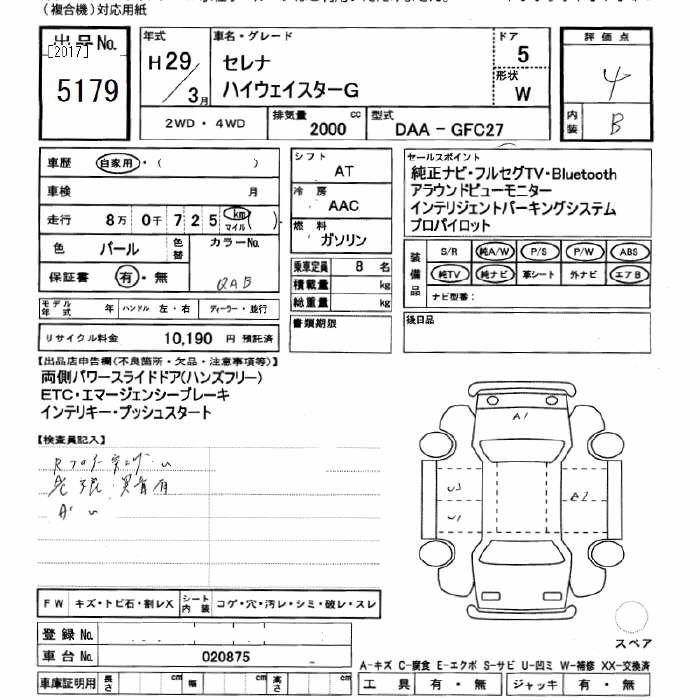 （複合機）対応用紙
出品No.
[2017]
5179
年式
H29
3月
車名・グレード
セレナ
ハイウェイスターG
ドア
5
形状
W
評価点
4
内装
B
2WD・4WD
排気量
2000
cc
型式
DAA－GFC27
車歴
自家用・（　　　）
車検
月
走行
8万0千725
km
マイル
（　）
色
パール
色替
カラーNo.
QAB
保証書
有・無
シフト
AT
冷房
AAC
燃料
ガソリン
乗車定員
8名
積載量
kg
総重量
kg
書類期限
セールスポイント
純正ナビ・フルセグTV・Bluetooth
アラウンドビューモニター
インテリジェントパーキングシステム
プロパイロット
装備品
S/R
純A/W
P/S
P/W
ABS
純TV
純ナビ
革シート
外ナビ
エアB
ナビ型番：
後日品
モデル年式
年
ハンドル
左・右
ディーラー・並行
リサイクル料金
10,190
円
預託済
【出品店申告欄（不良箇所・欠品・注意事項等）】
両側パワースライドドア（ハンズフリー）
ETC・エマージェンシーブレーキ
インテリキー・プッシュスタート
【検査員記入】
A1
U3
U1
A2
FW
キズ・トビ石・割レX
シート内装
コゲ・穴・汚レ・シミ・破レ・スレ
登録No.
車台No.
020875
車庫証明用
長さ
cm
幅
cm
高さ
cm
スペア
A-キズ C-腐食 E-エクボ S-サビ U-凹ミ W-補修 XX-交換済
工具
有・無
ジャッキ
有・無